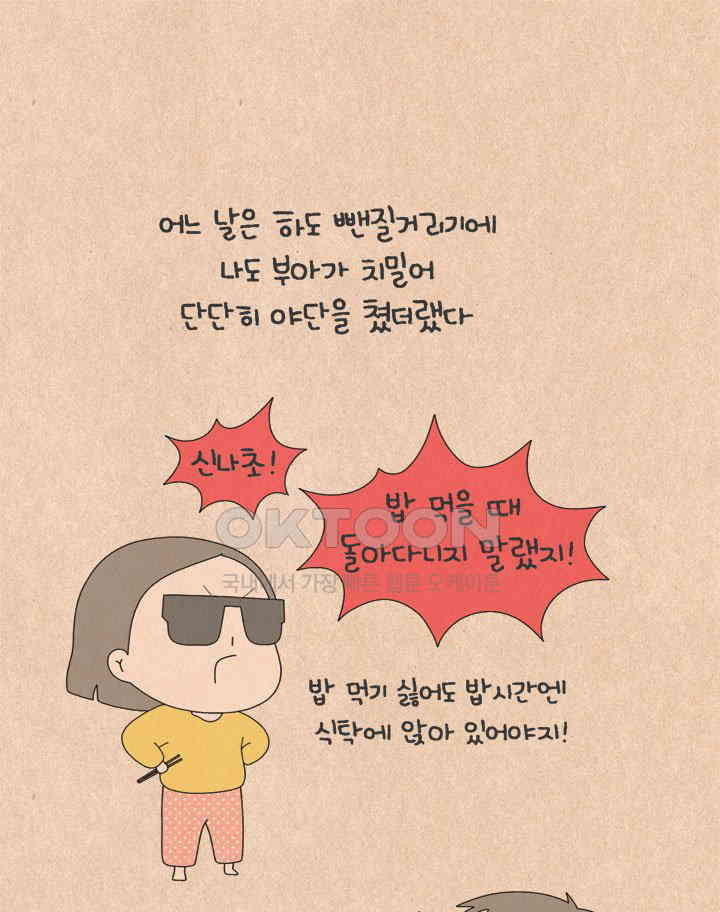 어느 날은 하도 뺀질거리기에
나도 부아가 치밀어
단단히 야단을 쳤더랬다
신나초!
밥 먹을 때
돌아다니지 말랬지!
OKTOON
국내에서 가장 빠른 웹툰 오케이툰
밥 먹기 싫어도 밥시간엔
식탁에 앉아 있어야지!